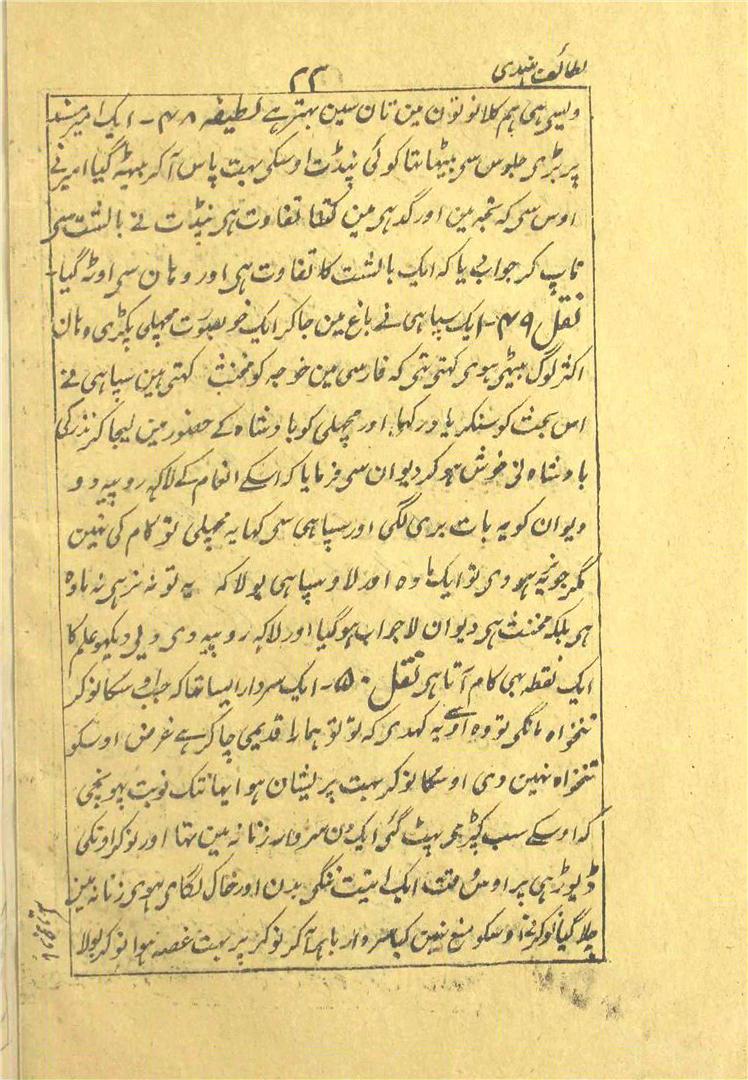 لطائف ہندی
۲۳
ویسی ہی ہم کلانوتون مین تان سین بہتر ہے لطیفہ ۴۸ - ایک امیر مسند
پر بڑی جلوس سی بیٹھا تھا کوئی پنڈت اوسکی بہت پاس آکر بیٹھ گیا امیر نے
اوس سی کہ تجہ مین اور گدہی مین کتنا تفاوت ہی پنڈت نے بالشت سی
ناپ کر جواب یا کہ ایک بالشت کا تفاوت ہی اور وہان سی اوٹہ گیا -
نقل ۴۹ - ایک سپاہی نے باغ مین جاکر ایک خوبصورت مچہلی پکڑی وہان
اکثر لوگ بیٹہی ہوی کہتی تہی کہ فارسی مین خوجہ کو مخنث کہتی ہین سپاہی نے
اس بحث کو سنکر یاد رکہا اور مچہلی کو بادشاہ کے حضور مین لیجا کر نذر کی
بادشاہ نی خوش ہو کر دیوان سی فرمایا کہ اسکے انعام کے لاکہہ روپیہ دو
دیوان کو یہ بات بری لگی اور سپاہی سی کہا یہ مچہلی تو کام کی نہین
مگر جو نر یہ ہووی تو ایک مادہ اور لاو سپاہی بولا کہ یہ تو نہ نر ہی نہ مادہ
ہی بلکہ مخنث ہی دیوان لاجواب ہوگیا اور لاکہہ روپیہ دی دیی دیکہو علم کا
ایک نقطہ بہی کام آتا ہی نقل ۵۰ - ایک سردار ایسا تھا کہ جب اوسکا نوکر
تنخواہ مانگی تو وہ اوسے یہ کہدی کہ تو تو ہمارا قدیمی چاکر ہے غرض اوسکو
تنخواہ نہین دی اوسکا نوکر بہت پریشان ہوا یہانتک نوبت پہونچی
کہ اوسکے سب کپڑے پہٹ گئی ایک دن سردار زنانہ مین تہا اور نوکر اونکی
ڈیوڑہی پر اوس وقت ایک اتیت ننگی بدن اور خاک لگای ہوی زنانہ مین
چلا گیا نوکر نے اوسکو منع نہین کیا سردار باہر آکر نوکر پر بہت غصہ ہوا نوکر بولا